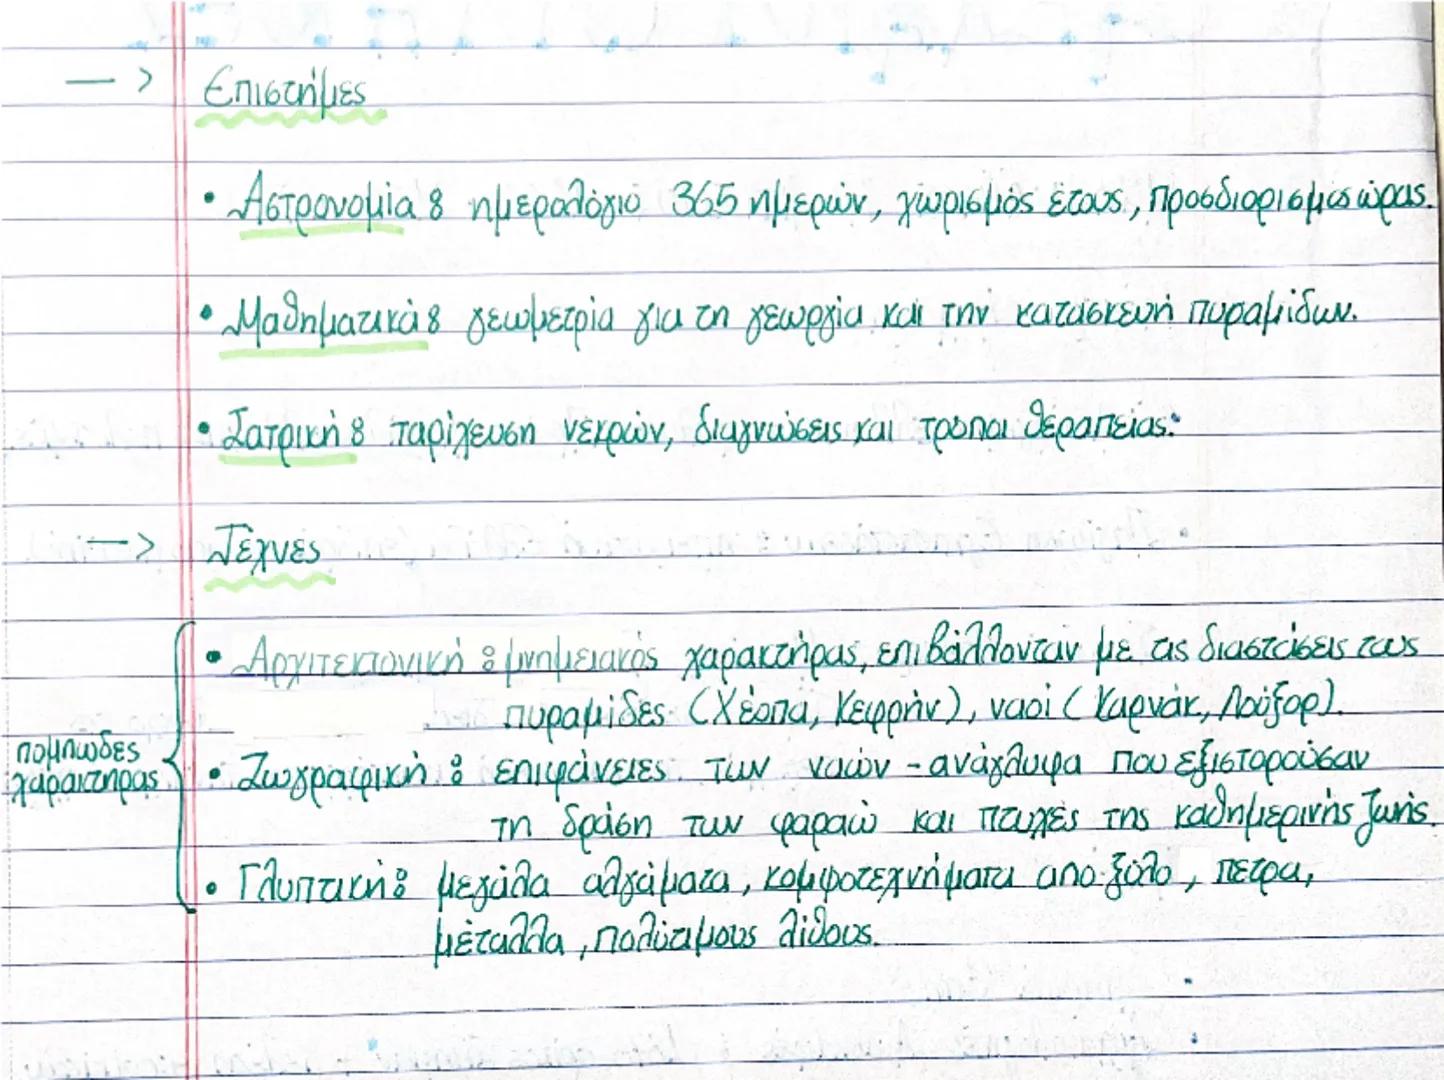 —> Επιστήμες
• Αστρονομία : ημερολόγιο 365 ημερών, χωρισμός έτους, προσδιορισμός ώρας.
• Μαθηματικά : γεωμετρία για τη γεωργία και την κατασκευή πυραμίδων.
• Ιατρική : ταρίχευση νεκρών, διαγνώσεις και τρόποι θεραπείας.
—> Τέχνες
• Αρχιτεκτονική : μνημειακός χαρακτήρας, επιβάλλονταν με τις διαστάσεις τους
πυραμίδες (Χέοπα, Κεφρήν), ναοί (Καρνάκ, Λούξορ).
πομπώδες
χαρακτήρας
• Ζωγραφική : επιφάνειες των ναών - ανάγλυφα που εξιστορούσαν
τη δράση των φαραώ και πτυχές της καθημερινής ζωής.
• Γλυπτική : μεγάλα αλγάματα, κομψοτεχνήματα από ξύλο, πέτρα,
μέταλλα, πολύτιμους λίθους.